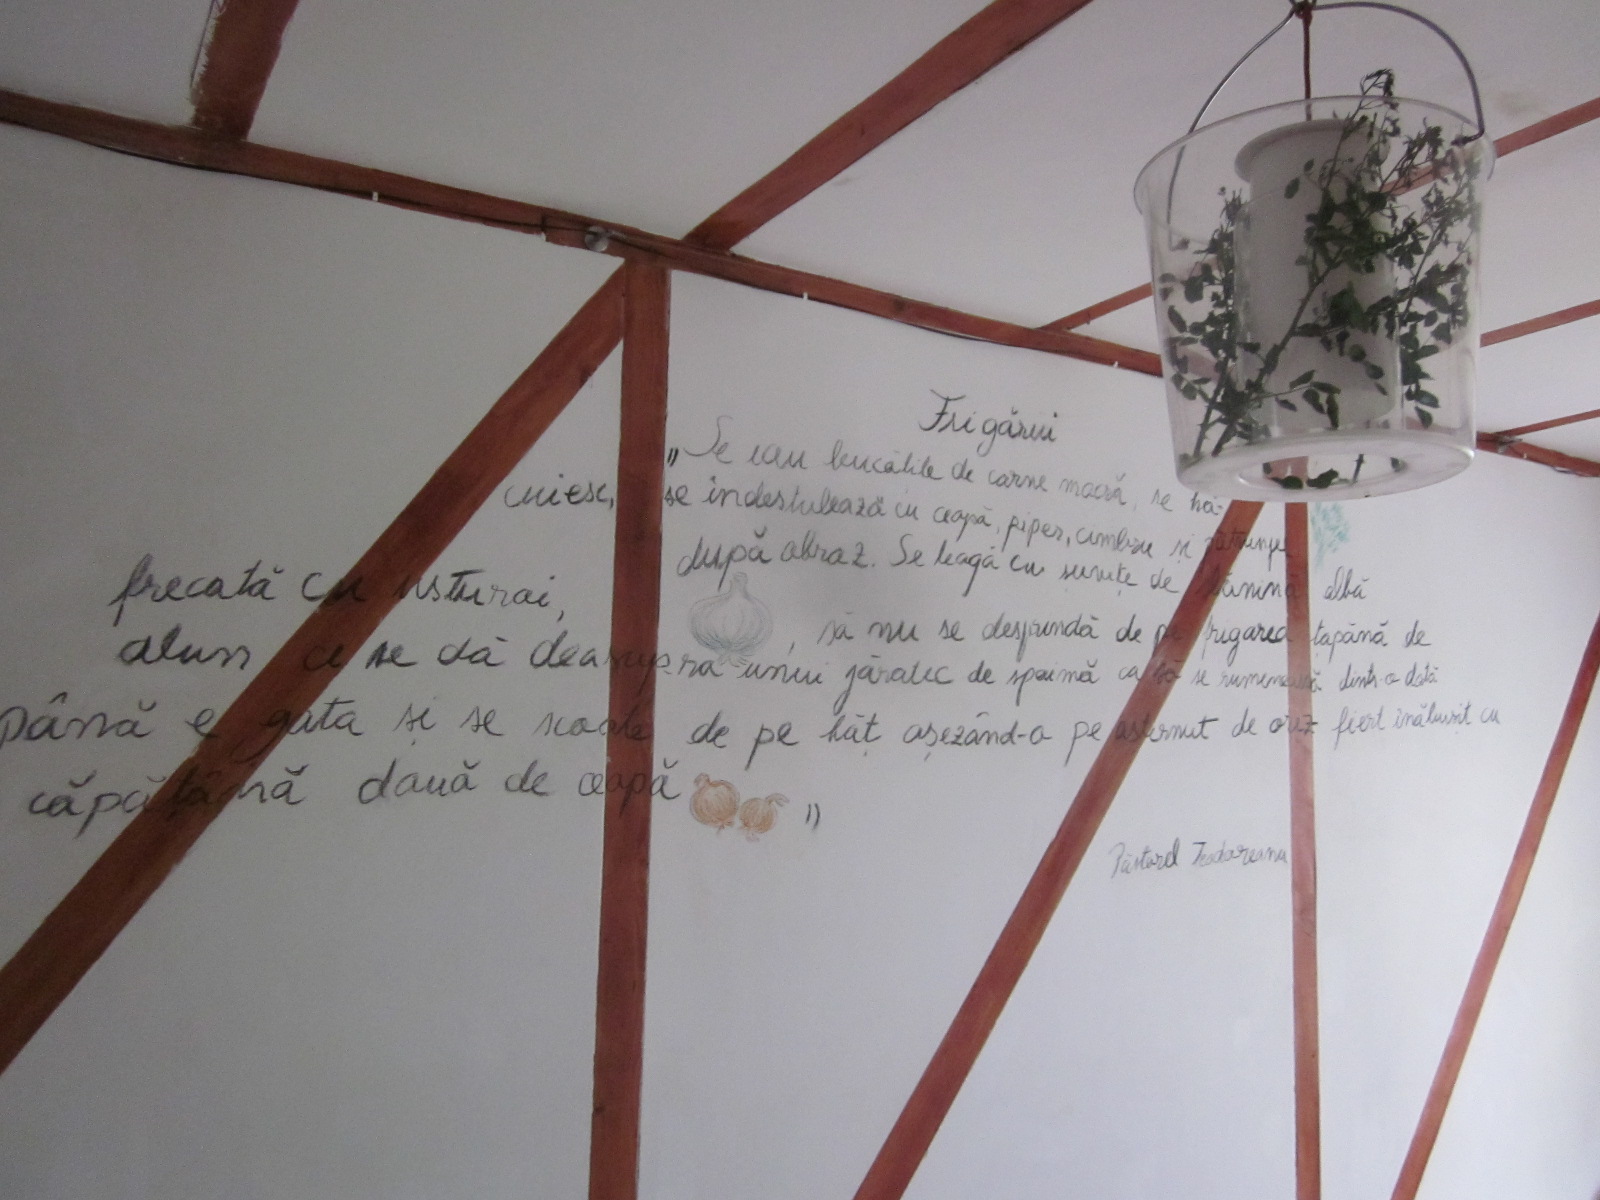 Frigărui
„Se iau bucățile de carne macră, se hă-
cuiesc, se îndestulează cu ceapă, piper, cimbru și pătrunjel
după obraz. Se leagă cu șuvițe de slănină albă
frecată cu usturoi, , să nu se desprindă de pe frigarea țapănă de
alun ce se dă deasupra unui jăratec de spaimă ca să se rumenească dintr-o dată
până e gata și se scoate de pe băț așezând-o pe așternut de orez fiert înăbușit cu
căpățână două de ceapă "
Păstorel Teodoreanu